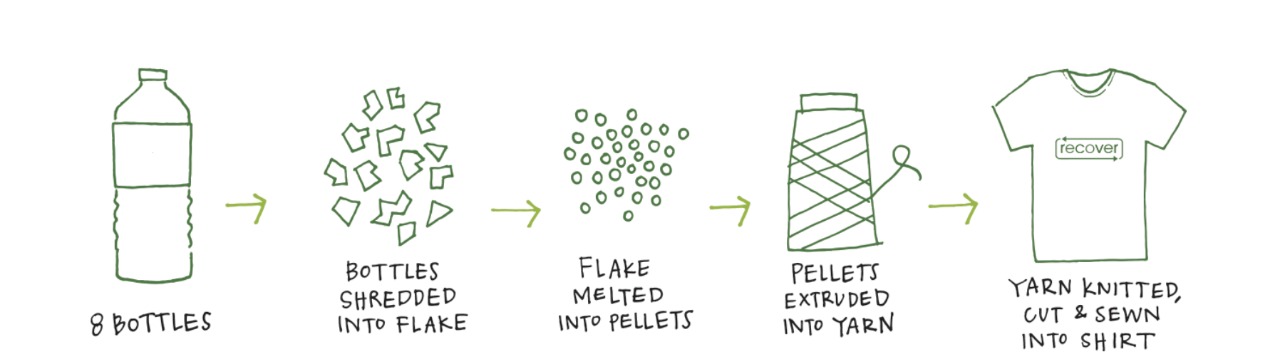 8 BOTTLES
BOTTLES
SHREDDED
INTO FLAKE
FLAKE
MELTED
INTO PELLETS
PELLETS
EXTRUDED
INTO YARN
recover
YARN KNITTED,
CUT & SEWN
INTO SHIRT